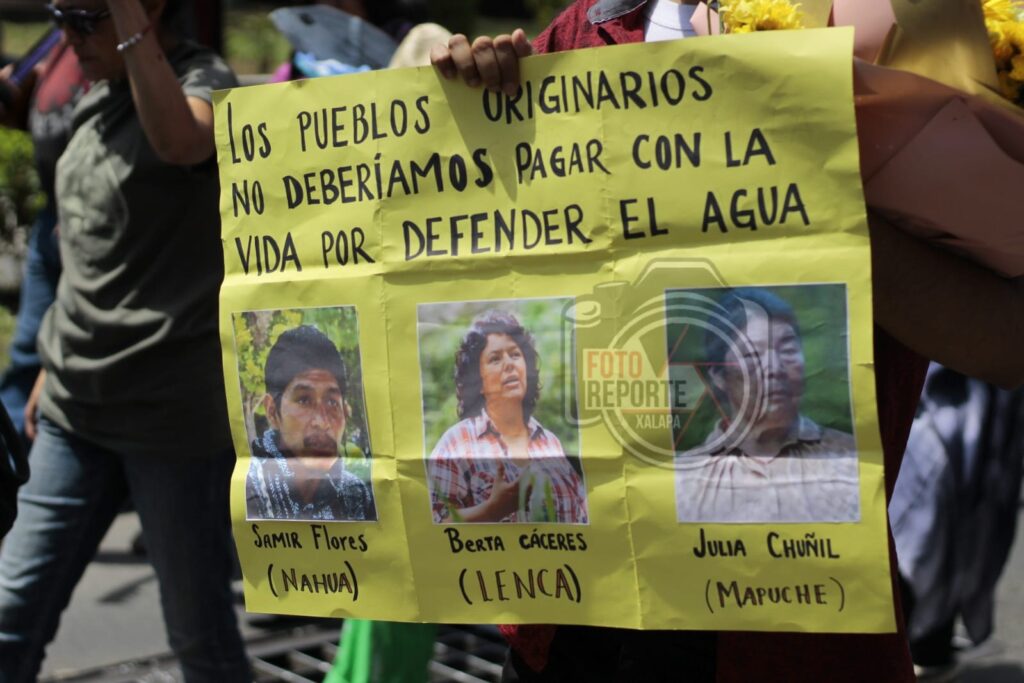 LOS PUEBLOS ORIGINARIOS
NO DEBERÍAMOS PAGAR CON LA
VIDA POR DEFENDER EL AGUA
FOTO
REPORTE
XALAPA
SAMIR FLORES
(NAHUA)
BERTA CÁCERES
(LENCA)
JULIA CHUÑIL
(MAPUCHE)